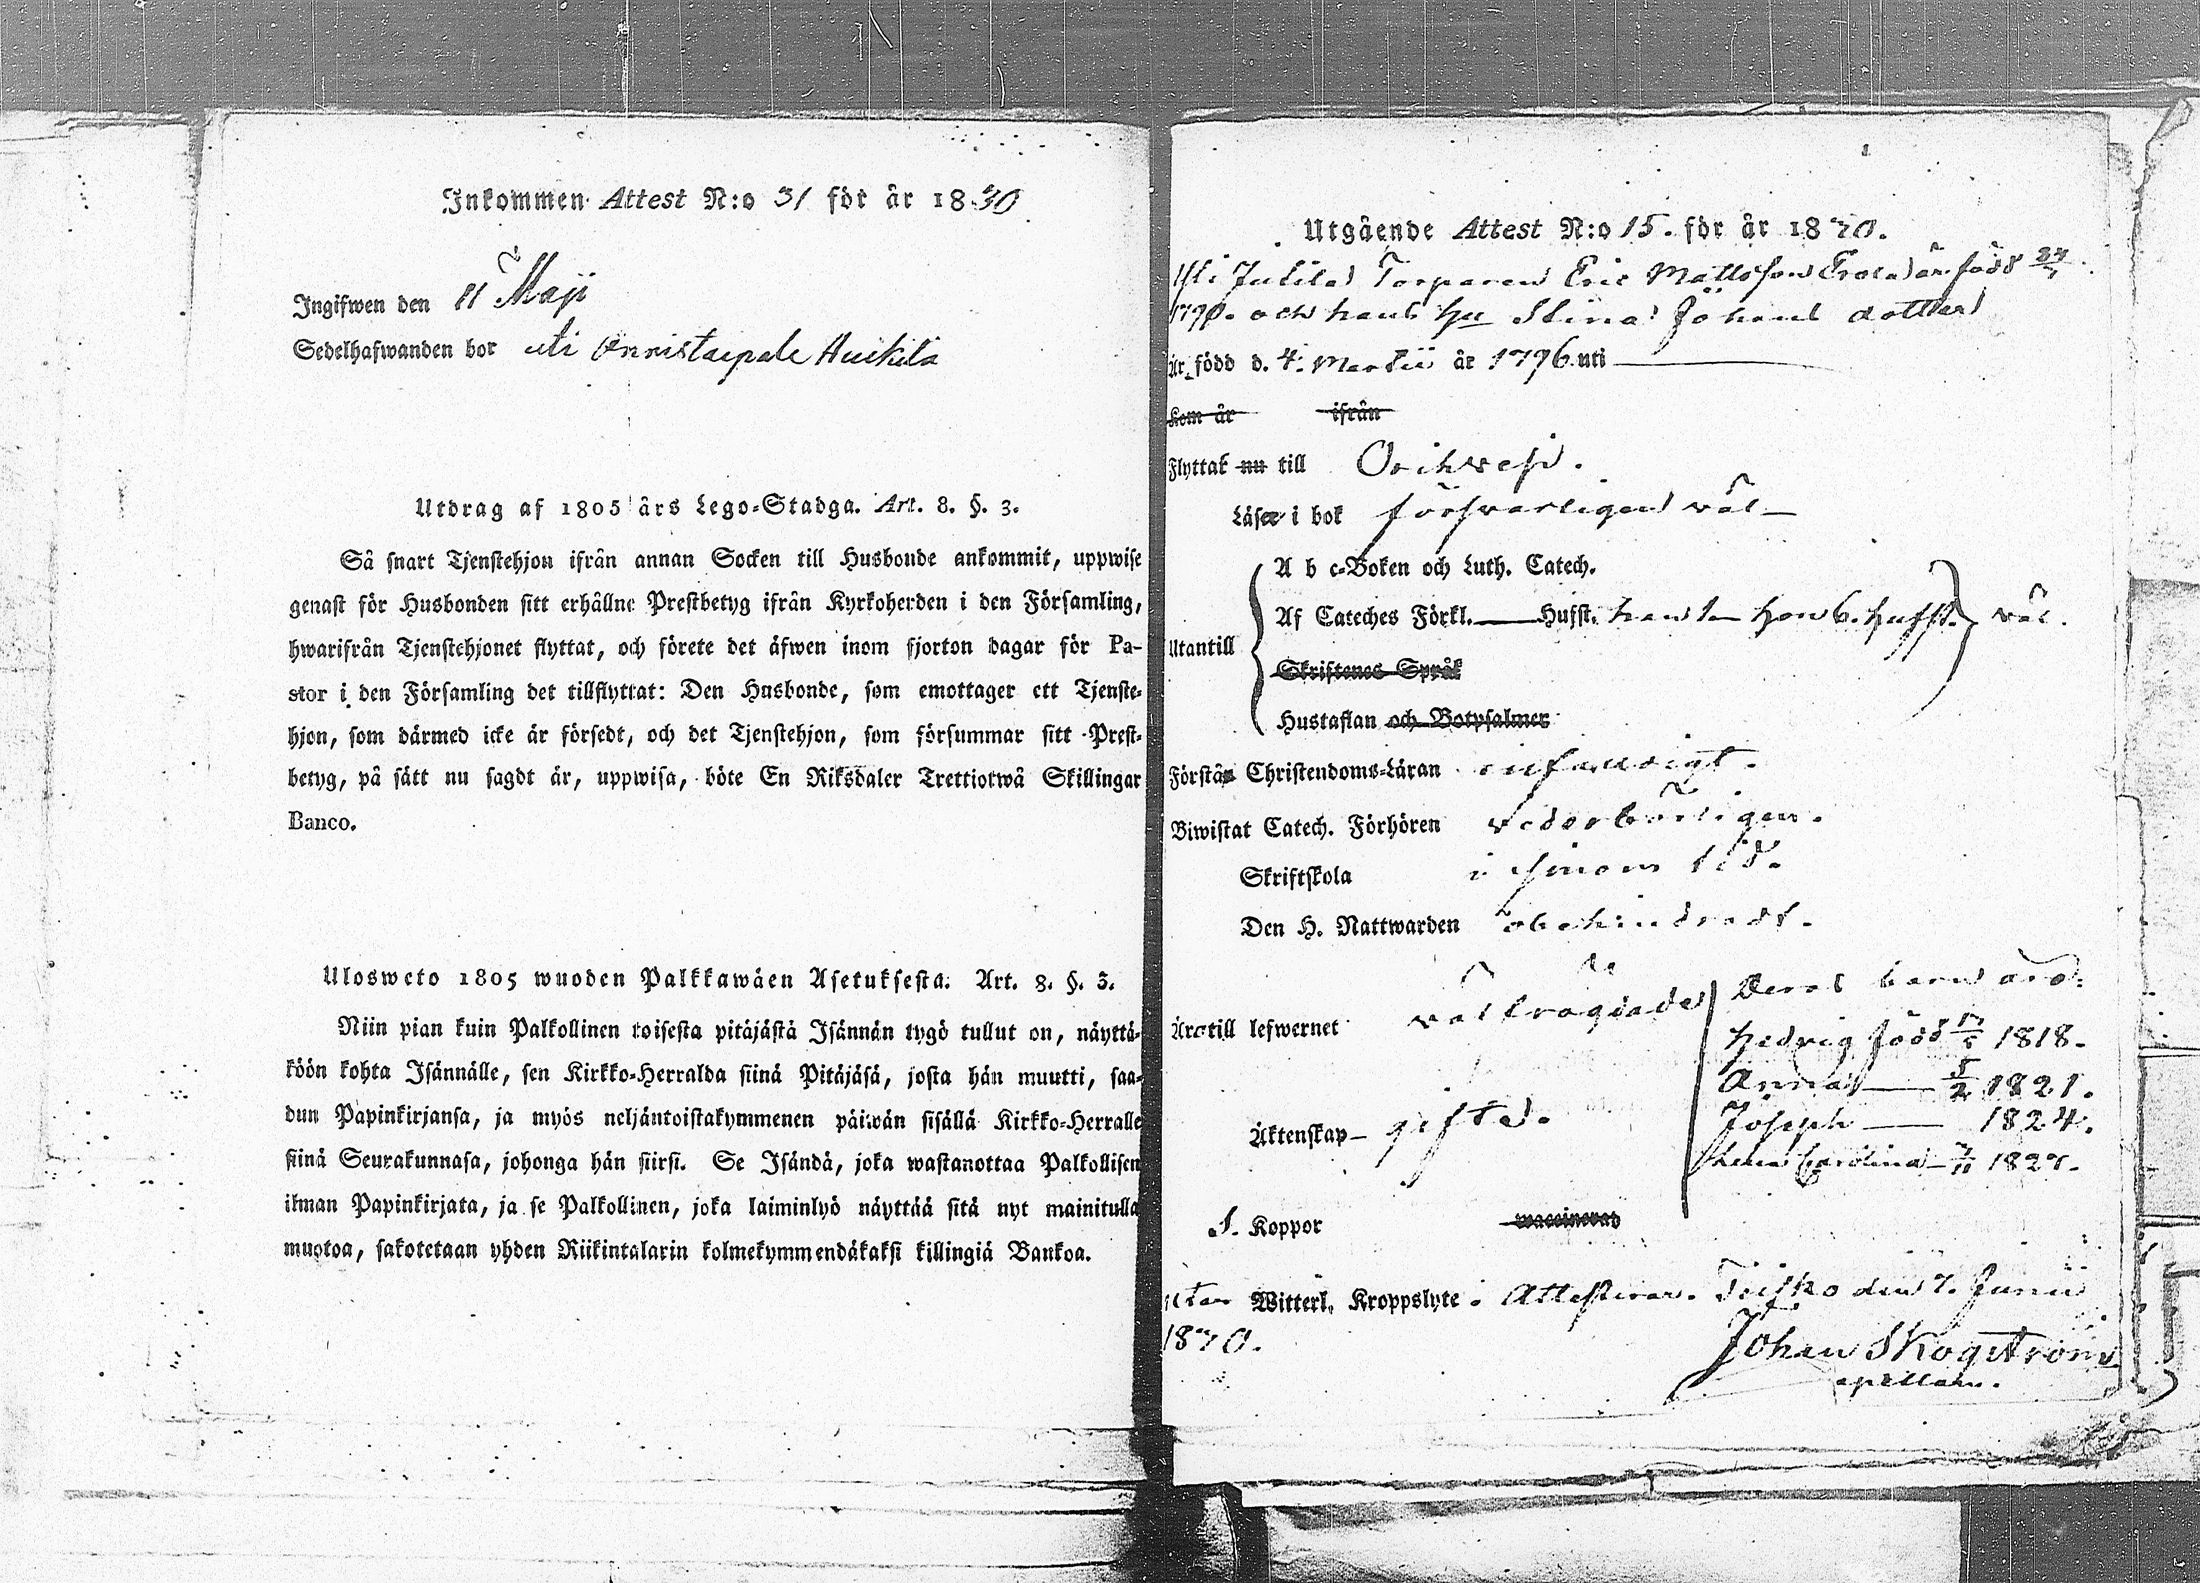 Inkommen Attest N:o 31 för år 1830
Ingifwen den 11 Maji
Sedelhafwanden bor uti Onnistaipale Huikila
Utdrag af 1805 års Lego-Stadga. Art. 8. §. 3.
Så snart Tjenstehjon ifrån annan Socken till Husbonde ankommit, uppwise
genast för Husbonden sitt erhållne Prestbetyg ifrån Kyrkoherden i den Församling,
hwarifrån Tjenstehjonet flyttat, och förete det äfwen inom fjorton dagar för Pa-
stor i den Församling det tillflyttat: Den Husbonde, som emottager ett Tjenste-
hjon, som därmed icke är försedt, och det Tjenstehjon, som försummar sitt Prest-
betyg, på sätt nu sagdt är, uppwisa, böte En Riksdaler Trettiotwå Skillingar
Banco.
Ulosweto 1805 wuoden Palkkawäen Asetuksesta. Art. 8. §. 3.
Niin pian kuin Palkollinen toisesta pitäjästä Isännän tygö tullut on, näyttä-
köön kohta Isännälle, sen Kirkko-Herralda siinä Pitäjäsä, josta hän muutti, saa-
dun Papinkirjansa, ja myös neljäntoistakymmenen päiwän sisällä Kirkko-Herralle
siinä Seurakunnasa, johonga hän siirsi. Se Isändä, joka wastanottaa Palkollisen
ilman Papinkirjata, ja se Palkollinen, joka laiminlyö näyttää sitä nyt mainitulla
muotoa, sakotetaan yhden Riikintalarin kolmekymmendäkaksi killingiä Bankoa.
Utgående Attest N:o 15. för år 1830.
Jutila Torparen Eric Mattsson är född
1790. och hans Hu Stina Johans dotter
Är född d. 4. Martii år 1796 uti
Kom år ifrån
Flyttat nu till Orihvesi.
Läser i bok försvarligen väl
A b c-Boken och Luth. Catech.
Utantill Af Cateches Förkl. Hufst. han 1 hon 6. hufst. väl.
Skriftenes Språk
Hustaflan och Botpsalmer
Förstår Christendoms-Läran enfaldigt.
Biwistat Catech. Förhören vederbörligen.
Skriftskola i sinom tid.
Den H. Nattwarden obehindradt.
Äro till lefwernet välfrägdade
Deras barn äro:
Hedvig född 17/5 1818.
Anna 5/2 1821.
Joseph 1824.
Lena Carolina 7/11 1827.
Äktenskap gifte.
Koppor waccinerad
utan Witterl. Kroppslyte. Attesterar. Teisko den 7. Junii
1830.
Johan Skogström
apellan.